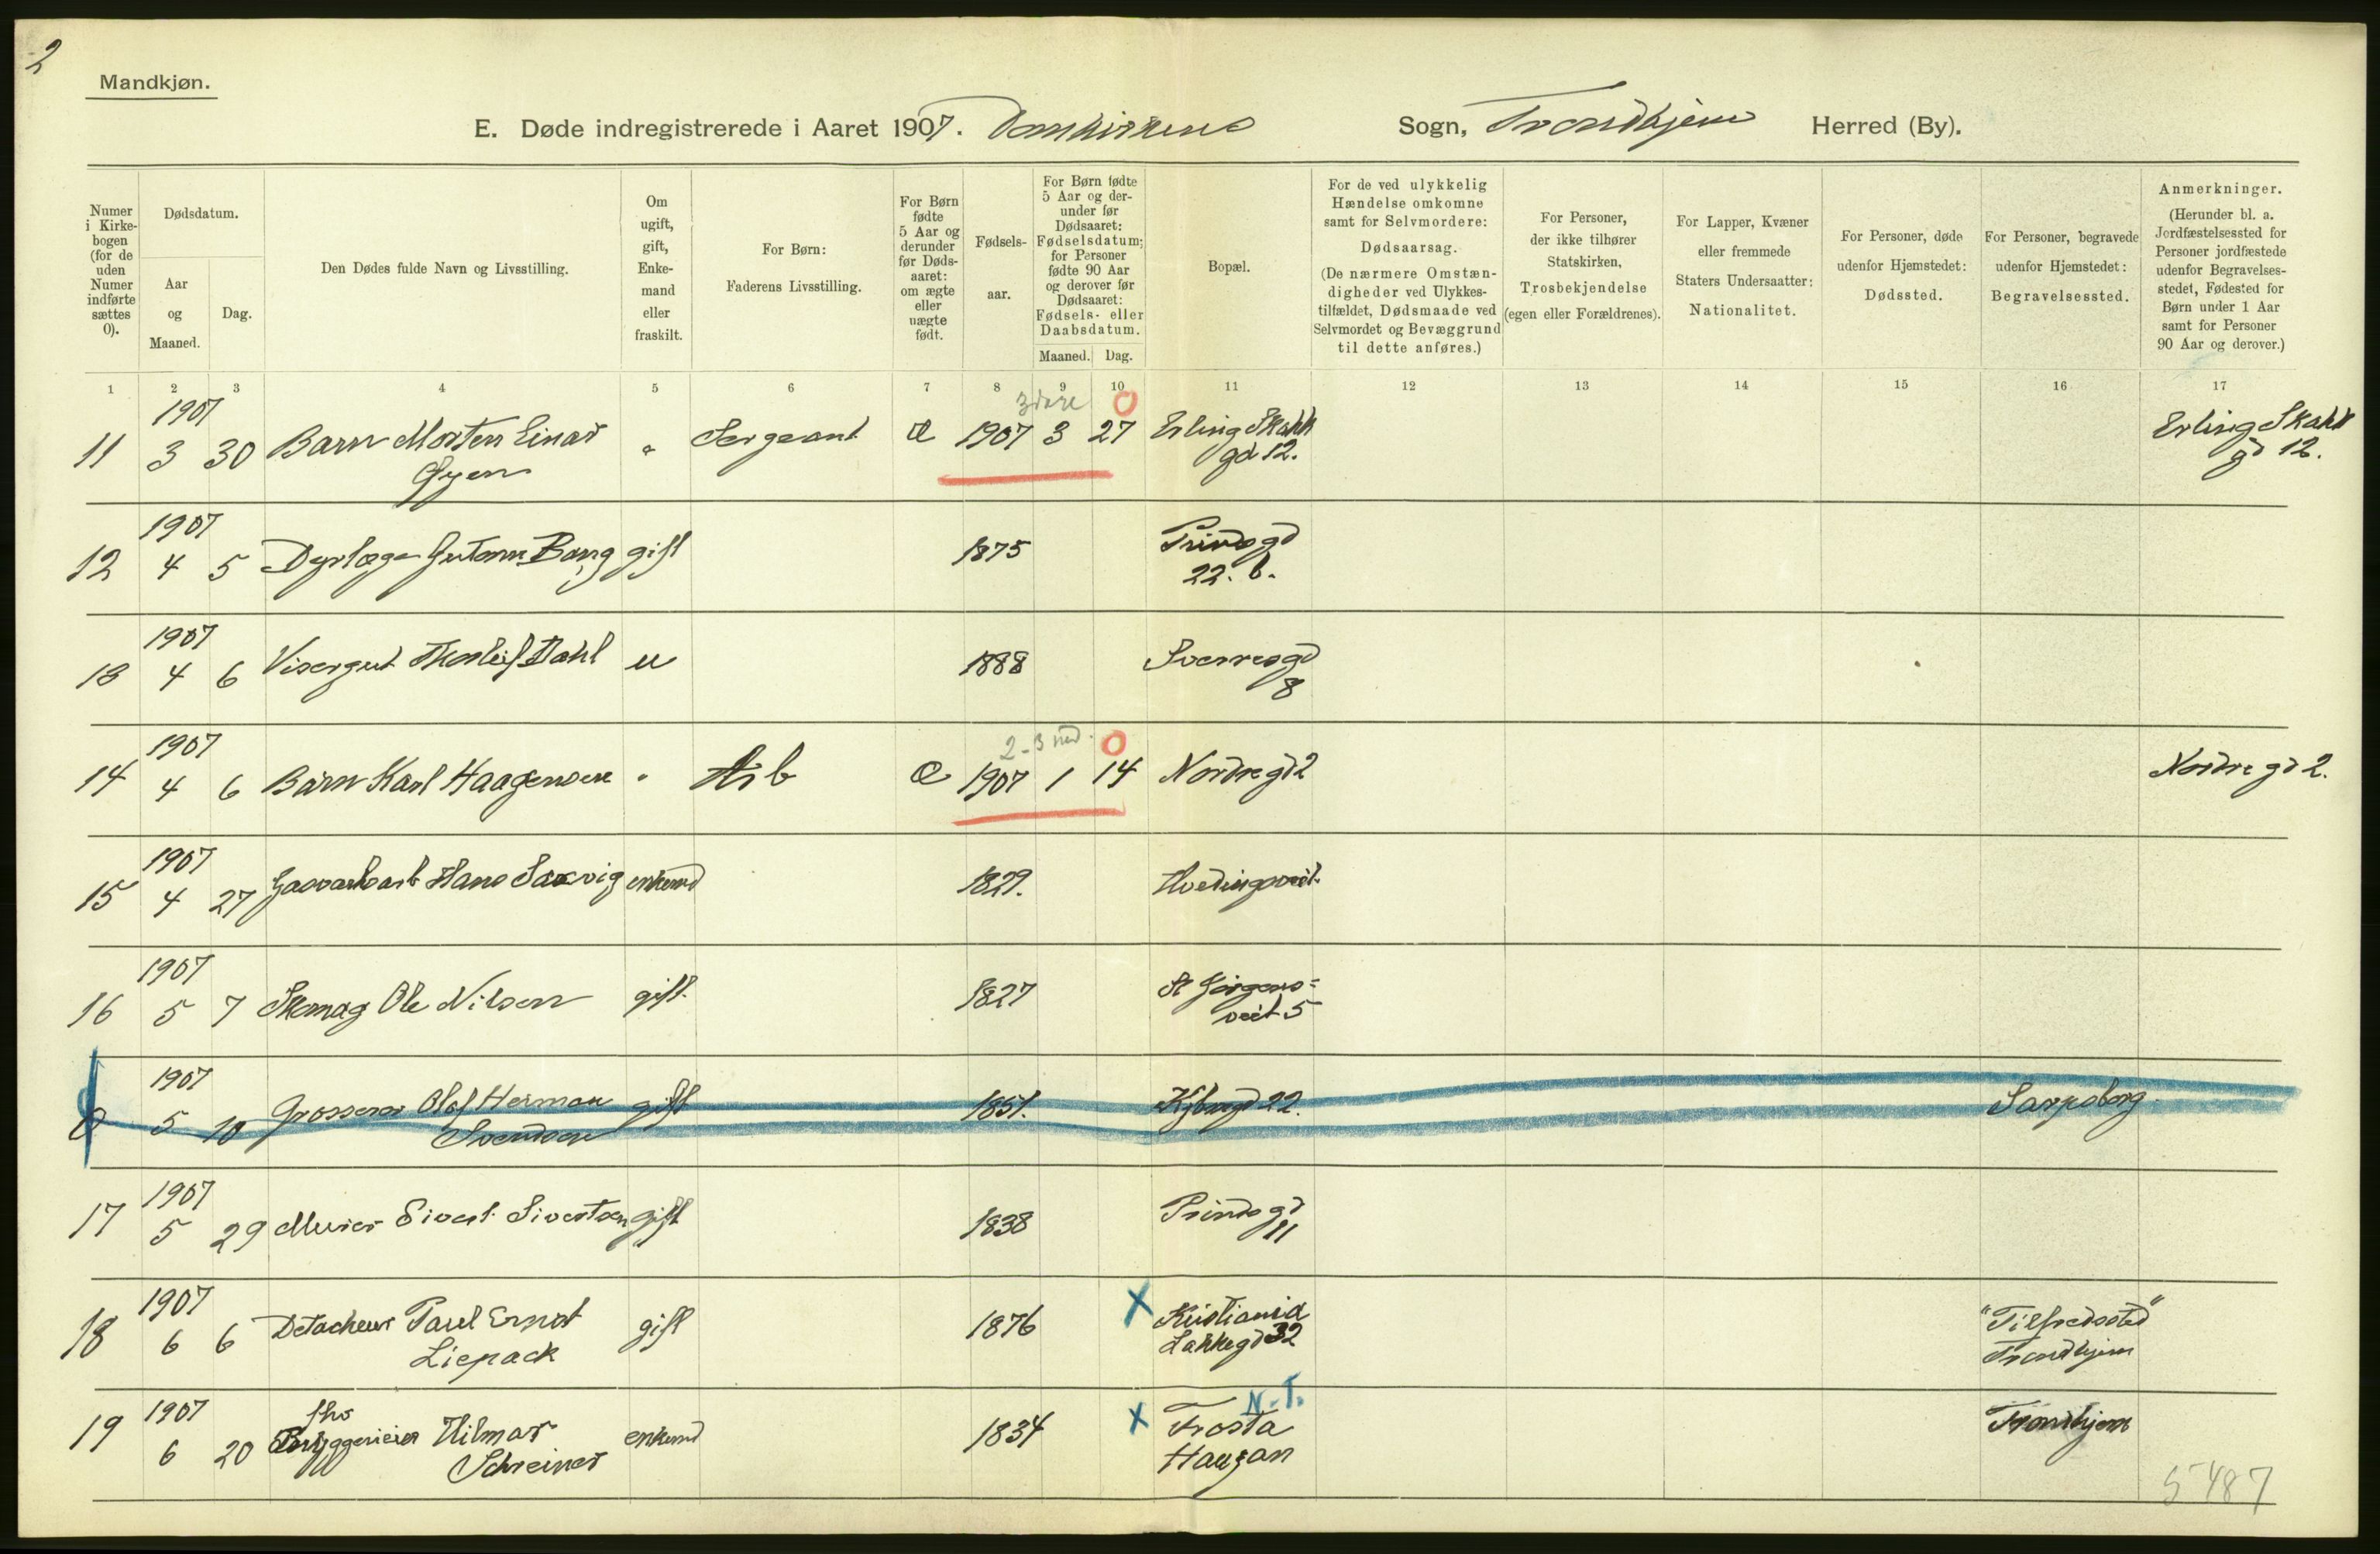 2
Mandkjøn.
E. Døde indregistrerede i Aaret 1907. Domkirkens Sogn, Trondhjem Herred (By).
Numer i Kirkebogen (for de uden Numer indførte sættes 0).
Dødsdatum.
Aar og Maaned.
Dag.
Den Dødes fulde Navn og Livsstilling.
Om ugift, gift, Enkemand eller fraskilt.
For Børn: Faderens Livsstilling.
For Børn fødte 5 Aar og derunder før Dødsaaret: om ægte eller uægte født.
Fødselsaar.
For Børn fødte 5 Aar og derunder før Dødsaaret: Fødselsdatum; for Personer fødte 90 Aar og derover før Dødsaaret: Fødsels- eller Daabsdatum.
Maaned. Dag.
Bopæl.
For de ved ulykkelig Hændelse omkomne samt for Selvmordere: Dødsaarsag. (De nærmere Omstændigheder ved Ulykkestilfældet, Dødsmaade ved Selvmordet og Bevæggrund til dette anføres.)
For Personer, der ikke tilhører Statskirken, Trosbekjendelse (egen eller Forældrenes).
For Lapper, Kvæner eller fremmede Staters Undersaatter: Nationalitet.
For Personer, døde udenfor Hjemstedet: Dødssted.
For Personer, begravede udenfor Hjemstedet: Begravelsessted.
Anmerkninger. (Herunder bl. a. Jordfæstelsessted for Personer jordfæstede udenfor Begravelsesstedet, Fødested for Børn under 1 Aar samt for Personer 90 Aar og derover.)
1 2 3 4 5 6 7 8 9 10 11 12 13 14 15 16 17
1907 0
11 3 30 Barn Morten Einar " Sergeant Æ 1907 3 27 Erling Skakk Erling Skakk
Øyen gd 12. gd 12.
1907
12 4 5 Dyrlæge Bang gift 1875 Prinds gd
22. b.
1907
13 4 6 Visergut Thorleif Dahl u 1888 Sverres gd
8
1907 2-3 0
14 4 6 Barn Karl Haagensen " Arb Æ 1907 1 14 Nordre gd 2 Nordre gd 2.
1907
15 4 27 Hans Saxvig enkemd 1829. Hvedingsveit.
1907
16 5 7 Skomag Ole Nilsen gift. 1827 St Jørgens=
veit 5
1907
0 5 10 Grosserer Olof Herman gift 1851. Kjbmgd 22. Sarpsborg
Svendsen
1907
17 5 29 Murer Sivert Sivertsen gift 1838 Prinds gd
11
1907
18 6 6 Detacheur Paul Ernst gift 1876 X Kristiania "Tilfredssted"
Liepack Lakkegd 32 Trondhjem
1907 fhv N.T.
19 6 20 Bryggerieier Hilmar enkemd 1834 X Frosta Trondhjem
Schreiner Haugan
5487